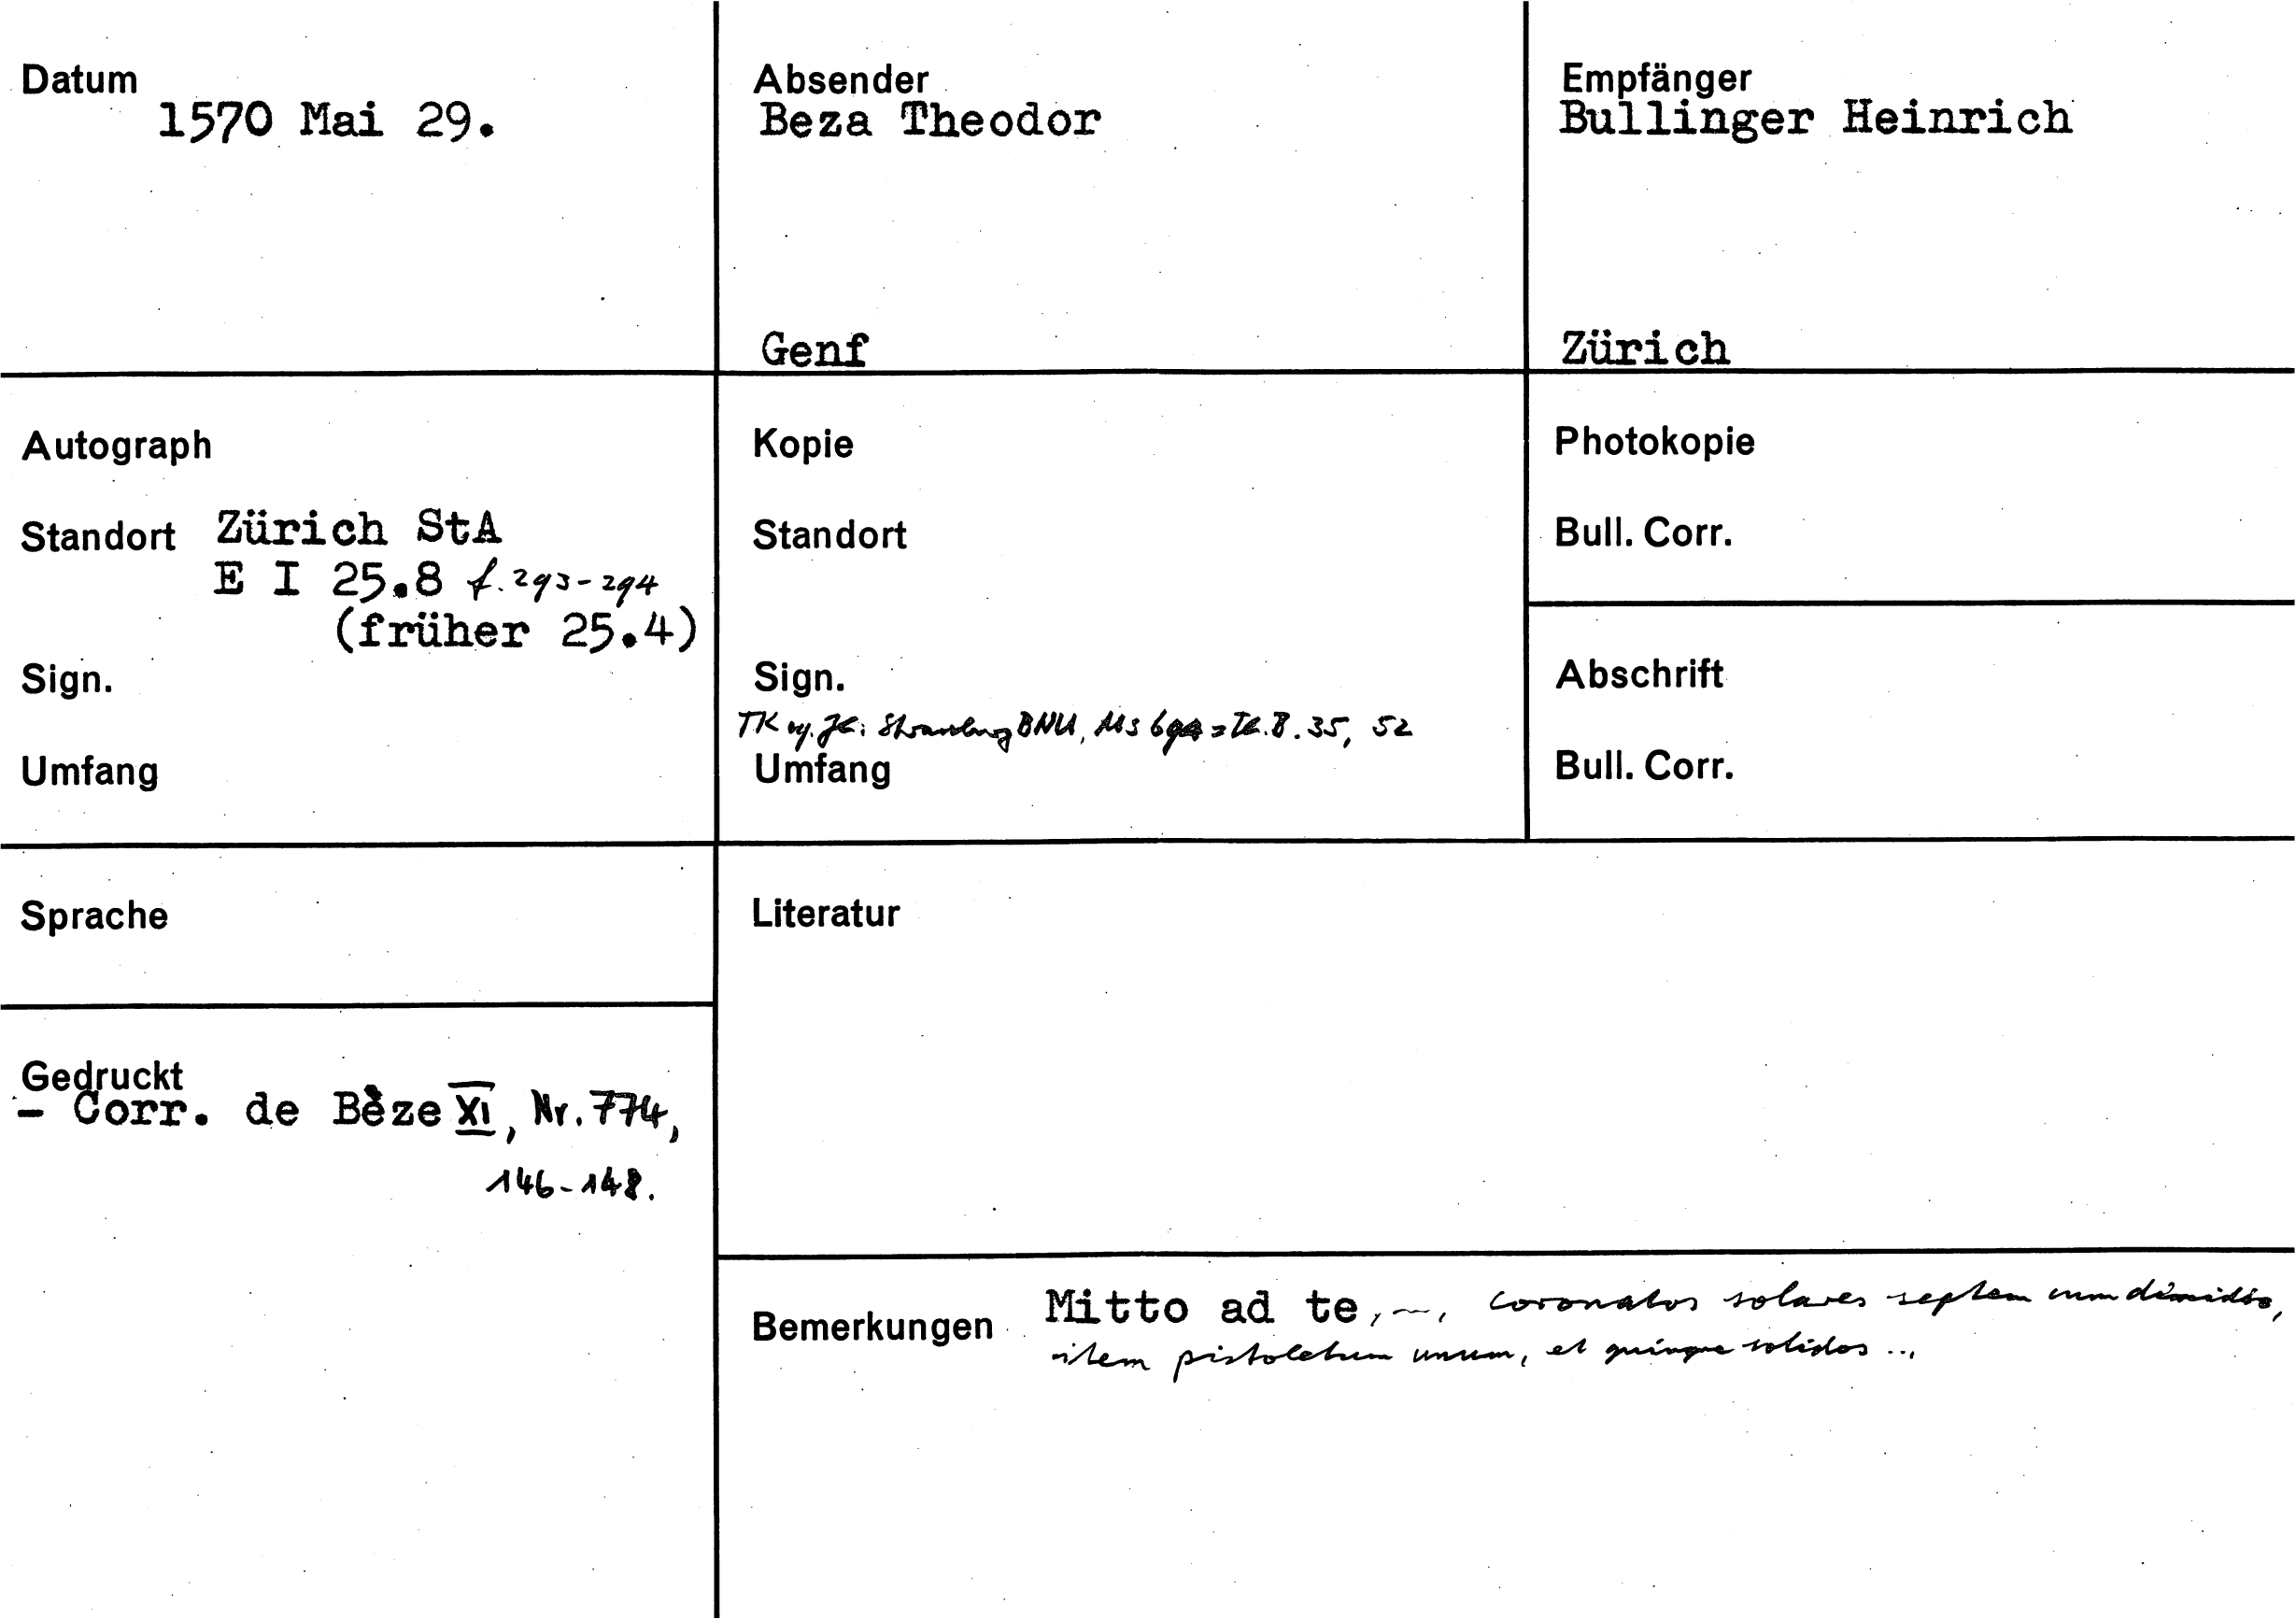 Datum
1570 Mai 29.
Absender
Beza Theodor
Genf
Empfänger
Bullinger Heinrich
Zürich
Autograph
Standort Zürich StA
E I 25.8 f. 293-294
(früher 25.4)
Sign.
Umfang
Kopie
Standort
Sign.
TK Strassburg BNU, Ms 35, 52
Umfang
Photokopie
Bull. Corr.
Abschrift
Bull. Corr.
Sprache
Gedruckt
- Corr. de Bèze XI, Nr. 774,
146-148.
Literatur
Bemerkungen Mitto ad te, —, coronatos solares septem cum dimidio,
item pistoletum unum, et quinque solidos ...